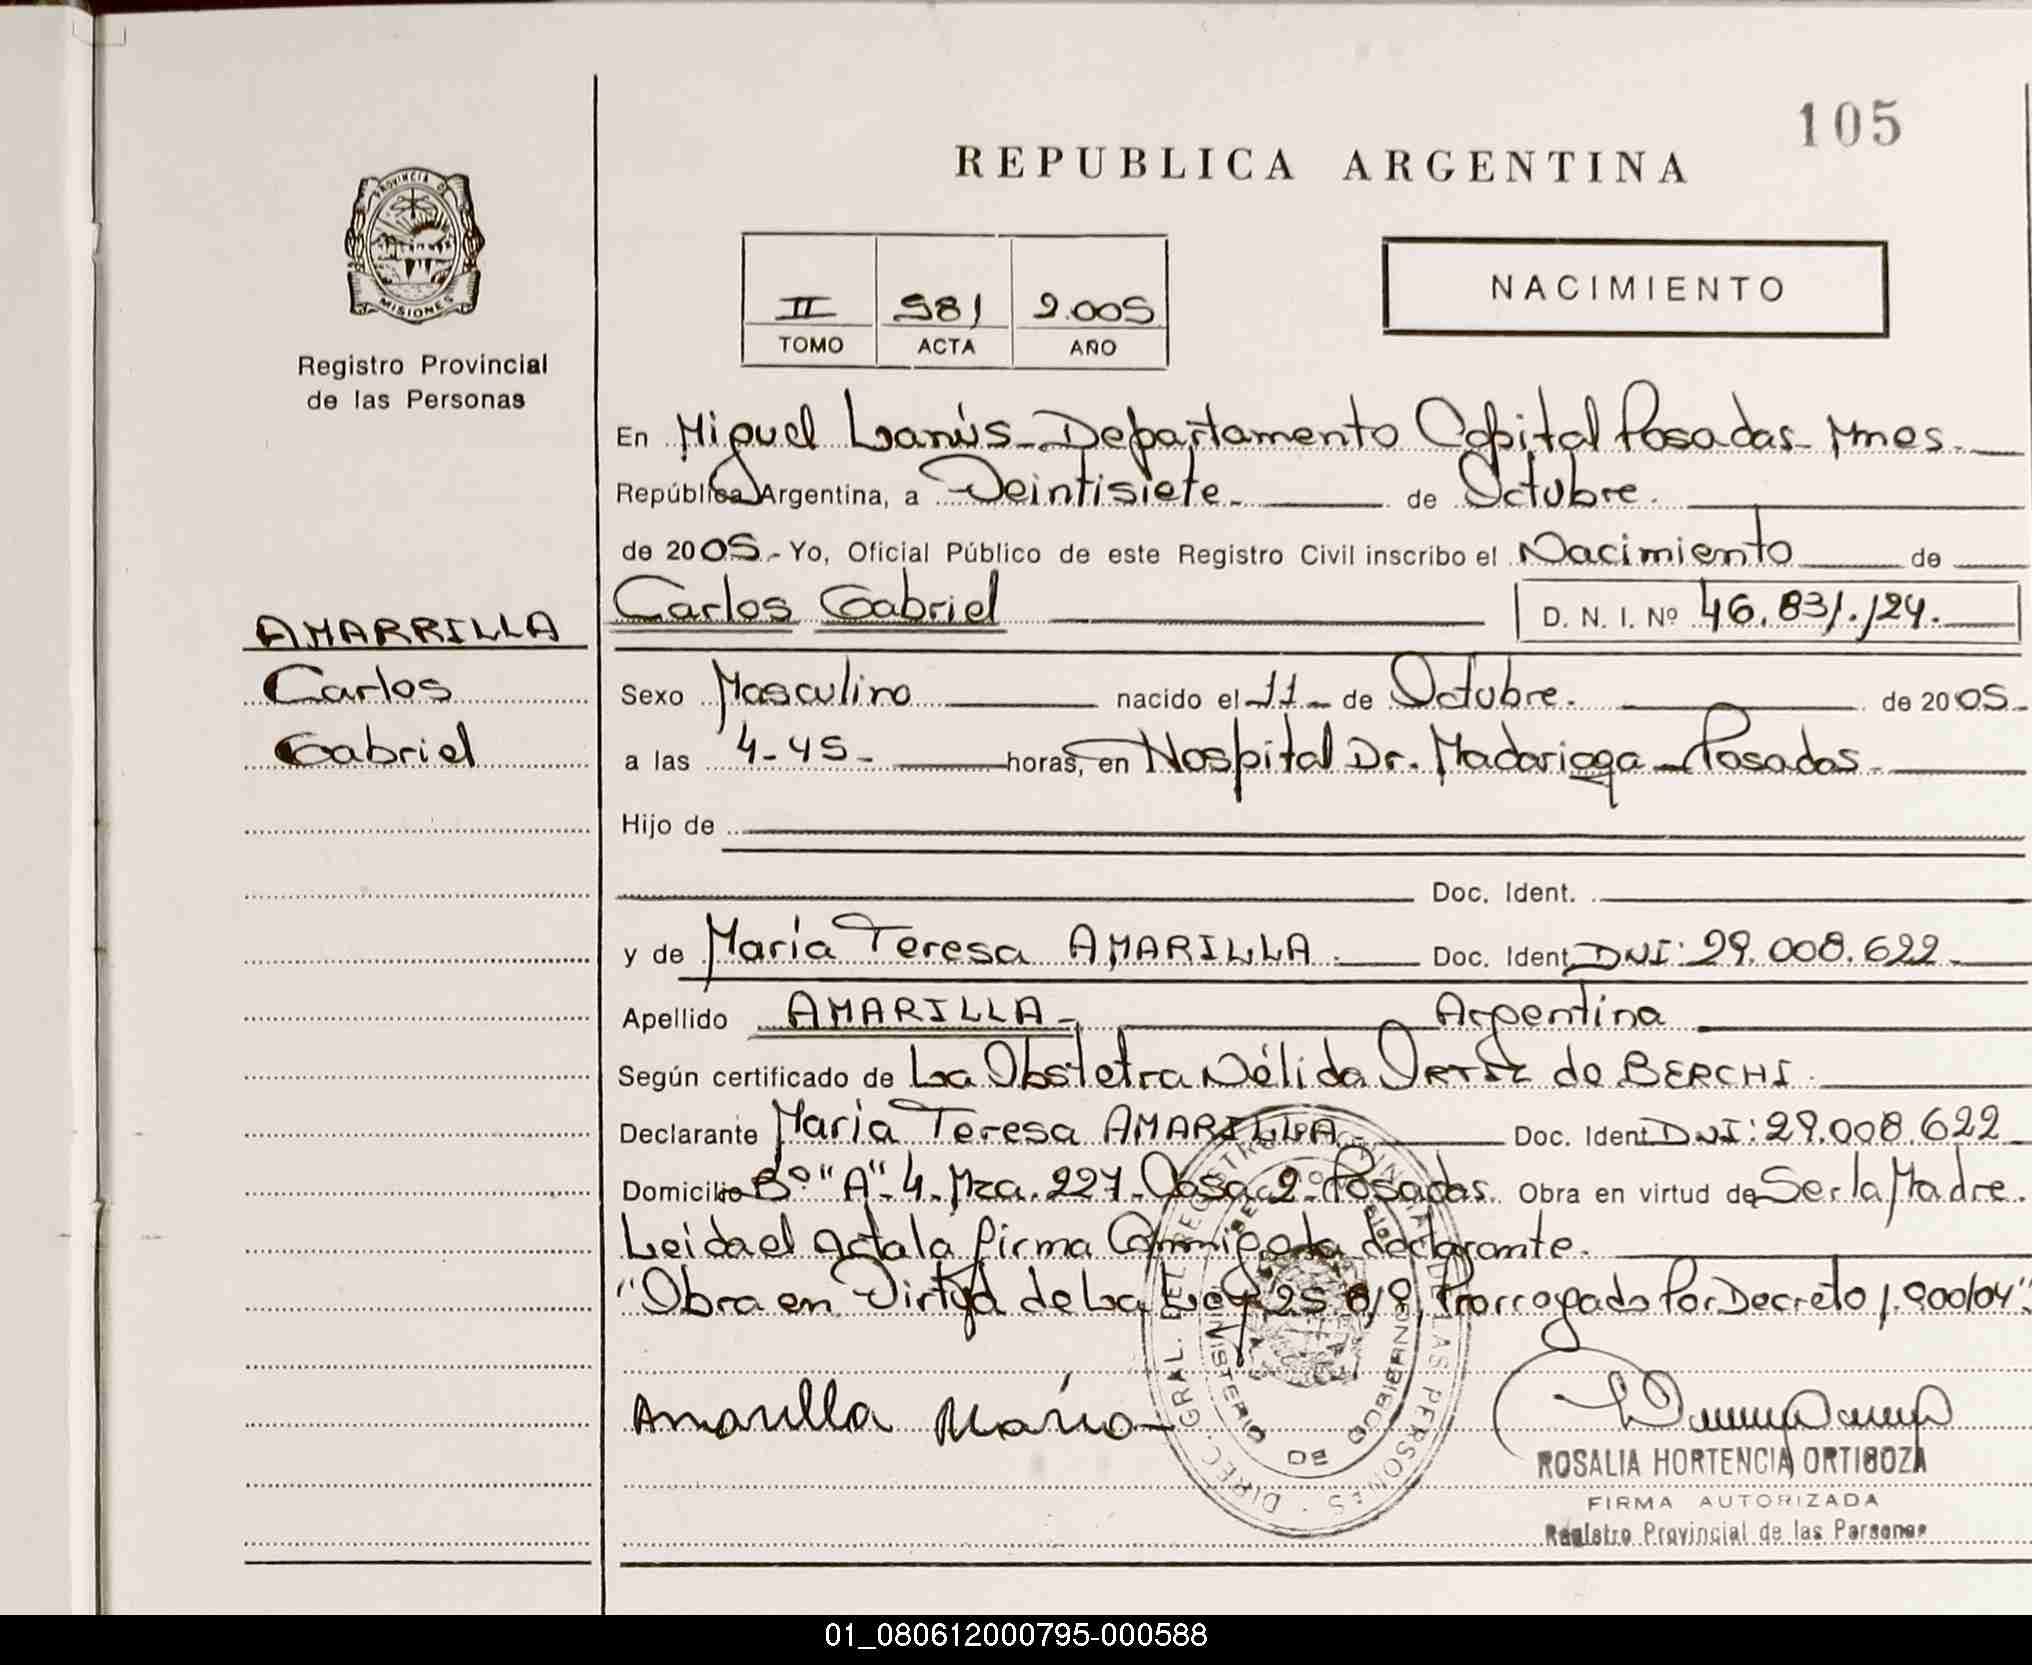 105
REPUBLICA ARGENTINA
PROVINCIA DE
MISIONES
Registro Provincial
de las Personas
II 581 2.005
TOMO ACTA AÑO
NACIMIENTO
En Miguel Lanús - Departamento Capital Posadas - Mnes.
República Argentina, a Veintisiete - de Octubre.
de 2005.- Yo, Oficial Público de este Registro Civil inscribo el Nacimiento de
AMARRILLA
Carlos
Gabriel
Carlos Gabriel D. N. I. Nº 46.831.124.
Sexo Masculino nacido el 11 - de Octubre. de 2005.
a las 4-45 - horas, en Hospital Dr. Madariaga - Posadas -
Hijo de
Doc. Ident.
y de María Teresa AMARILLA. Doc. Ident. DNI: 29.008.622 -
Apellido AMARILLA - Argentina
Según certificado de La Obstetra Nélida ORTIZ de BERCHI.
Declarante María Teresa AMARILLA - Doc. Ident. DNI: 29.008.622
Domicilio Bº "A" - 4. Mza. 227 - Casa 2 - Posadas. Obra en virtud de Ser la Madre.
Leida el acta la firma Conmigo la declarante.
"Obra en Virtud de La Ley 25.818, Prorrogado Por Decreto 1.900/04".
Amarilla María -
DIREC. GRAL. DEL REGISTRO PROVINCIAL DE LAS PERSONAS
MINISTERIO DE GOBIERNO
ROSALIA HORTENCIA ORTIGOZA
FIRMA AUTORIZADA
Registro Provincial de las Personas
01_080612000795-000588